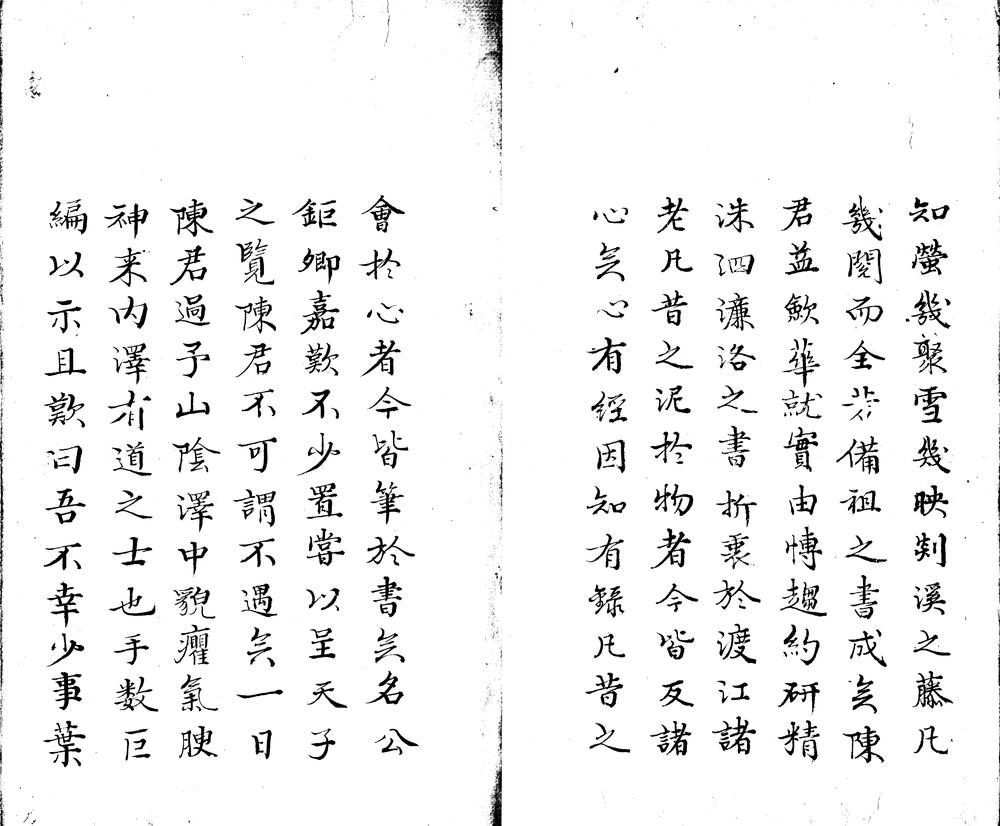 知螢幾聚雪幾映剡溪之藤凡
幾閱而全芥備祖之書成矣陳
君益歛華就實由博趨約研精
洙泗濂洛之書折衷於渡江諸
老凡昔之泥於物者今皆反諸
心矣心有經因知有錄凡昔之
會於心者今皆筆於書矣名公
鉅卿嘉歎不少置嘗以呈天子
之覽陳君不可謂不遇矣一日
陳君過予山陰澤中貌癯氣腴
神来内澤有道之士也手数巨
編以示且歎曰吾不幸少事葉